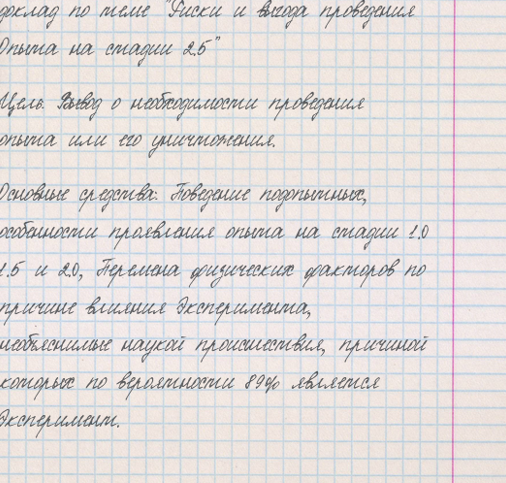 доклад по теме "Риски и выгода проведения
Опыта на стадии 2.5"
Цель: Вывод о необходимости проведения
опыта или его уничтожения.
Основные средства: Поведение подопытных,
особенности проявления опыта на стадии 1.0
1.5 и 2.0, Перемена физических факторов по
причине влияния Эксперимента,
необъяснимые наукой происшествия, причиной
которых по вероятности 89% является
Эксперимент.